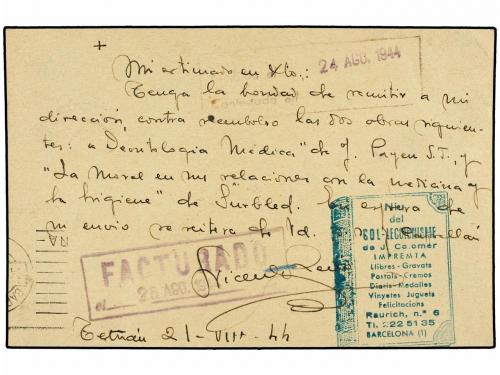 +
24 AGO. 1944
Mi estimado en Xto.:
Contestada el
Tenga la bondad de remitir a mi
dirección, contra reembolso las dos obras siguien-
tes: "Deontología Médica" de J. Payen S.I., y
"La Moral en sus relaciones con la medicina y
la higiene" de Surbled. En espera de
su envío se reitera de Vd.
RA-
FACTURADO
el 26 AGO. 19
Vicente
Niu
del
COL·LECCIONISME
de J. Colomer
IMPREMTA
Llibres - Gravats
Postals - Cromos
Diaris - Medalles
Vinyetes Juguets
Felicitacions
Raurich, n.º 6
Tl. 222 51 35
BARCELONA (1)
Tetuán 21-VIII-44